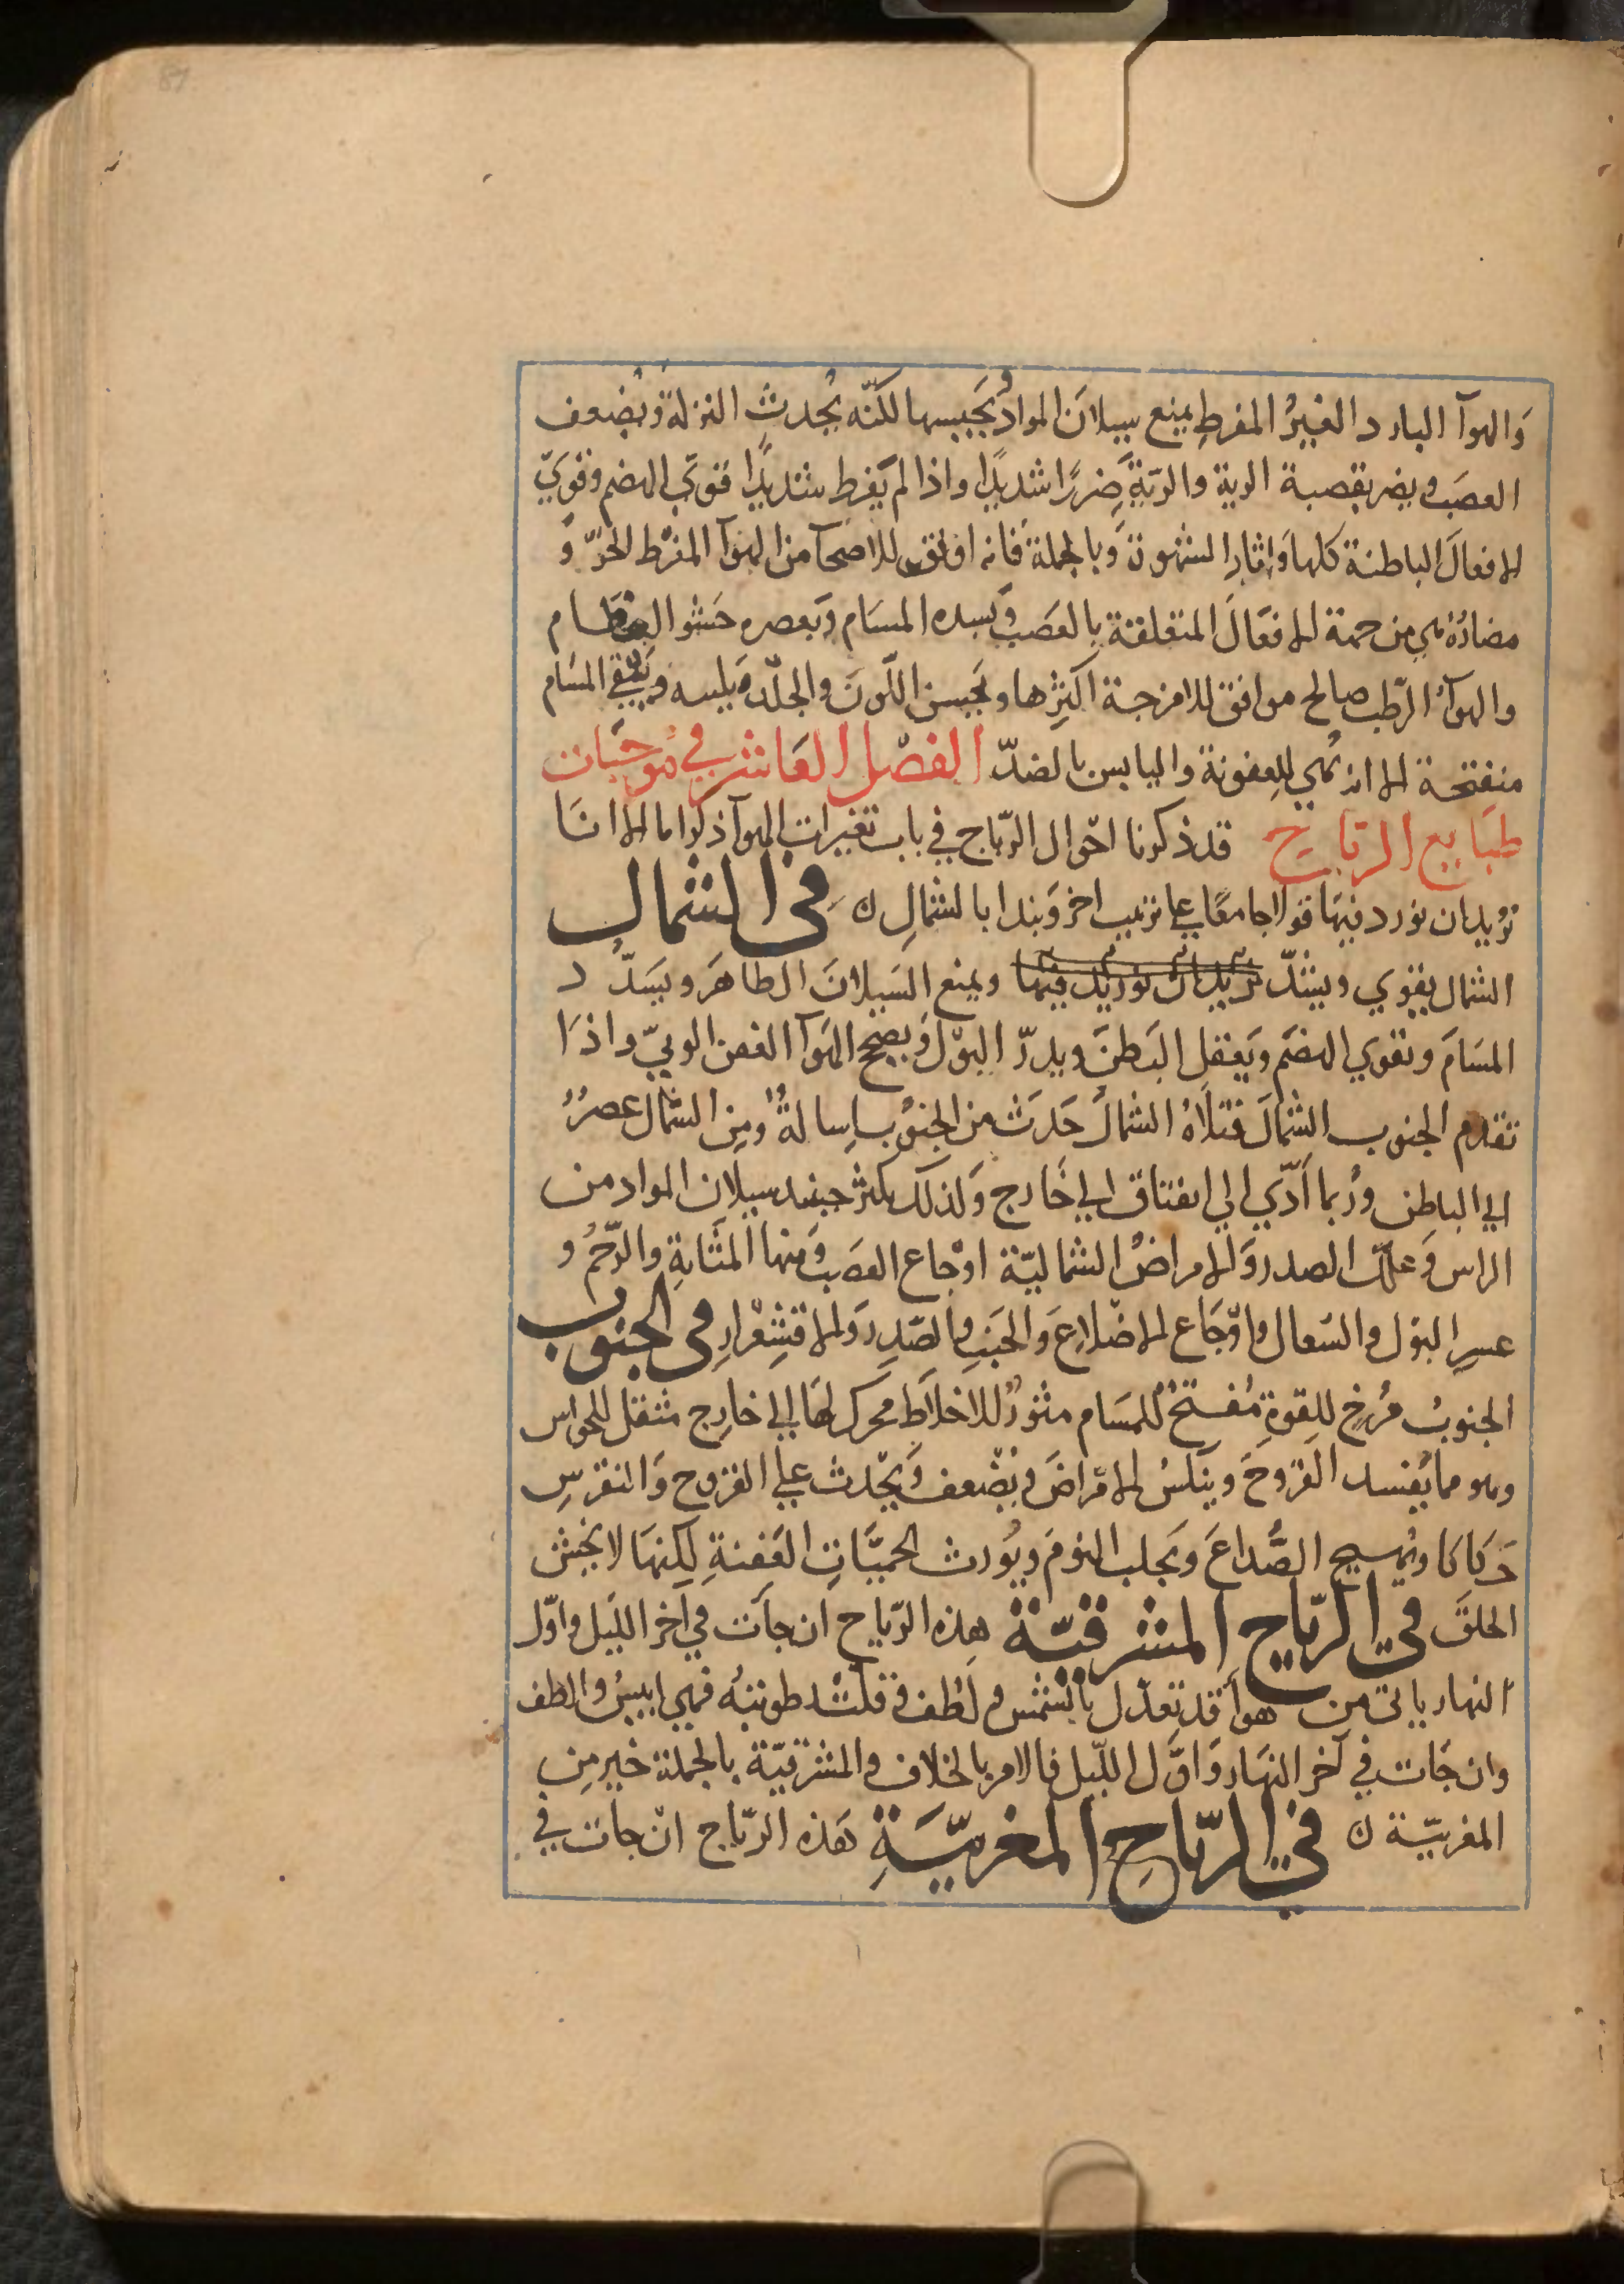 87
وَالهوآ البارد الغيرُ المفرطِ يمنع سيلانَ الموادّ وُيَحبسها لكنّه يُحدث النزلة ويُضعف
العصَب ويضر بقصبة الرية والرّيَةِ ضررًا شديدًا واذا لم يَفرط شديدًا قوّي الهضم وقويّ
الافعالَ الباطنة كلها وَاثار الشهوة وَبالجملة فانه اوفق للاصحآ من الهوآ المفرْط الحرّ وَ
مضارّهُ هي من جهة الافعَال المتعلقة بالعصَب وَبسده المسَام وَبعصره حَشو العظام
والهوآءُ الرّطب صالح موافق للامزجة اكثرها ويَحسن اللّونَ والجلْد وَيلينه ويُبقي المسَام
منفتحة الا انه يُهيي للعِفونة واليابس بالضدّ الفصْل العَاشر في مُوجبَات
طبَايع الرّياحِ قد ذكرنا احْوال الرّياح في باب تغيرات الهوآ ذكرًا ما الا انَا
نرُيد ان نورد فيهَا قولا جامعًا علي ترتيب اخر وَنبدا بالشمالِ ن فِي الشمال
الشمال يقوي ويشدّ نريد ان نورد فيها ويمنع السَيلانَ الظاهَر ويسَدُّ د
المسَامَ ويقوي الهضَم ويَعقل البَطنَ ويدرّ البوْل وَيصحح الهَوآ العَفن الوبيّ واذَا
تقدم الجنوب الشمَال فتلاَهُ الشمالُ حَدَث من الجنُوب اِسالةٌ ومِن الشمَال عصرُُ
الي الباطن ورُبما اَدّي الي انفتاق الي خَارج وَلذلك يكثر حينيد سيلان المواد من
الراس وَعلل الصدر وَالامراضُ الشماليّة اوْجاع العصَب وَمنها المثَانةِ والرّحُم و
عسرِ البَول والسّعال واوْجَاع الاضْلاعِ وَالجَنبِ والصّدِر وَالاقشعْرارِ في الجنوب
الجنوبُ مُرخِ للقوةِ مُفتحُ للمسَام مثورُ للاخلاَط محرك لهَا الي خارِج مثقل للحواس
وهو مما يُفسد القرُوحَ وينَكسُ الامْراضَ ويُضْعف وَيحْدث علي القروح وَالنقرسِ
حَكاكا ويُهيج الصُّداعَ ويَجلب النومَ ويُورث الحميَّاتِ العَفنةِ لكِنهَا لا تخشن
الحلقَ في الرّياح المشرقيّة هذِه الرّياح ان جآت في آخر الليَل واوّل
النهار ياتى من هوآ قد تعدّل بالشمْس و لَطف وَقلتْ رطوبتهُ فهي ايبسُ والطف
وان جَات في آخر النهَار وَاوَّل الليّل فالامر بالخلاف والمشرقيّة بالجملة خير مِن
المغربيّة ن في الرّياحِ المغربيّةِ هَذه الرّياح انْ جات في